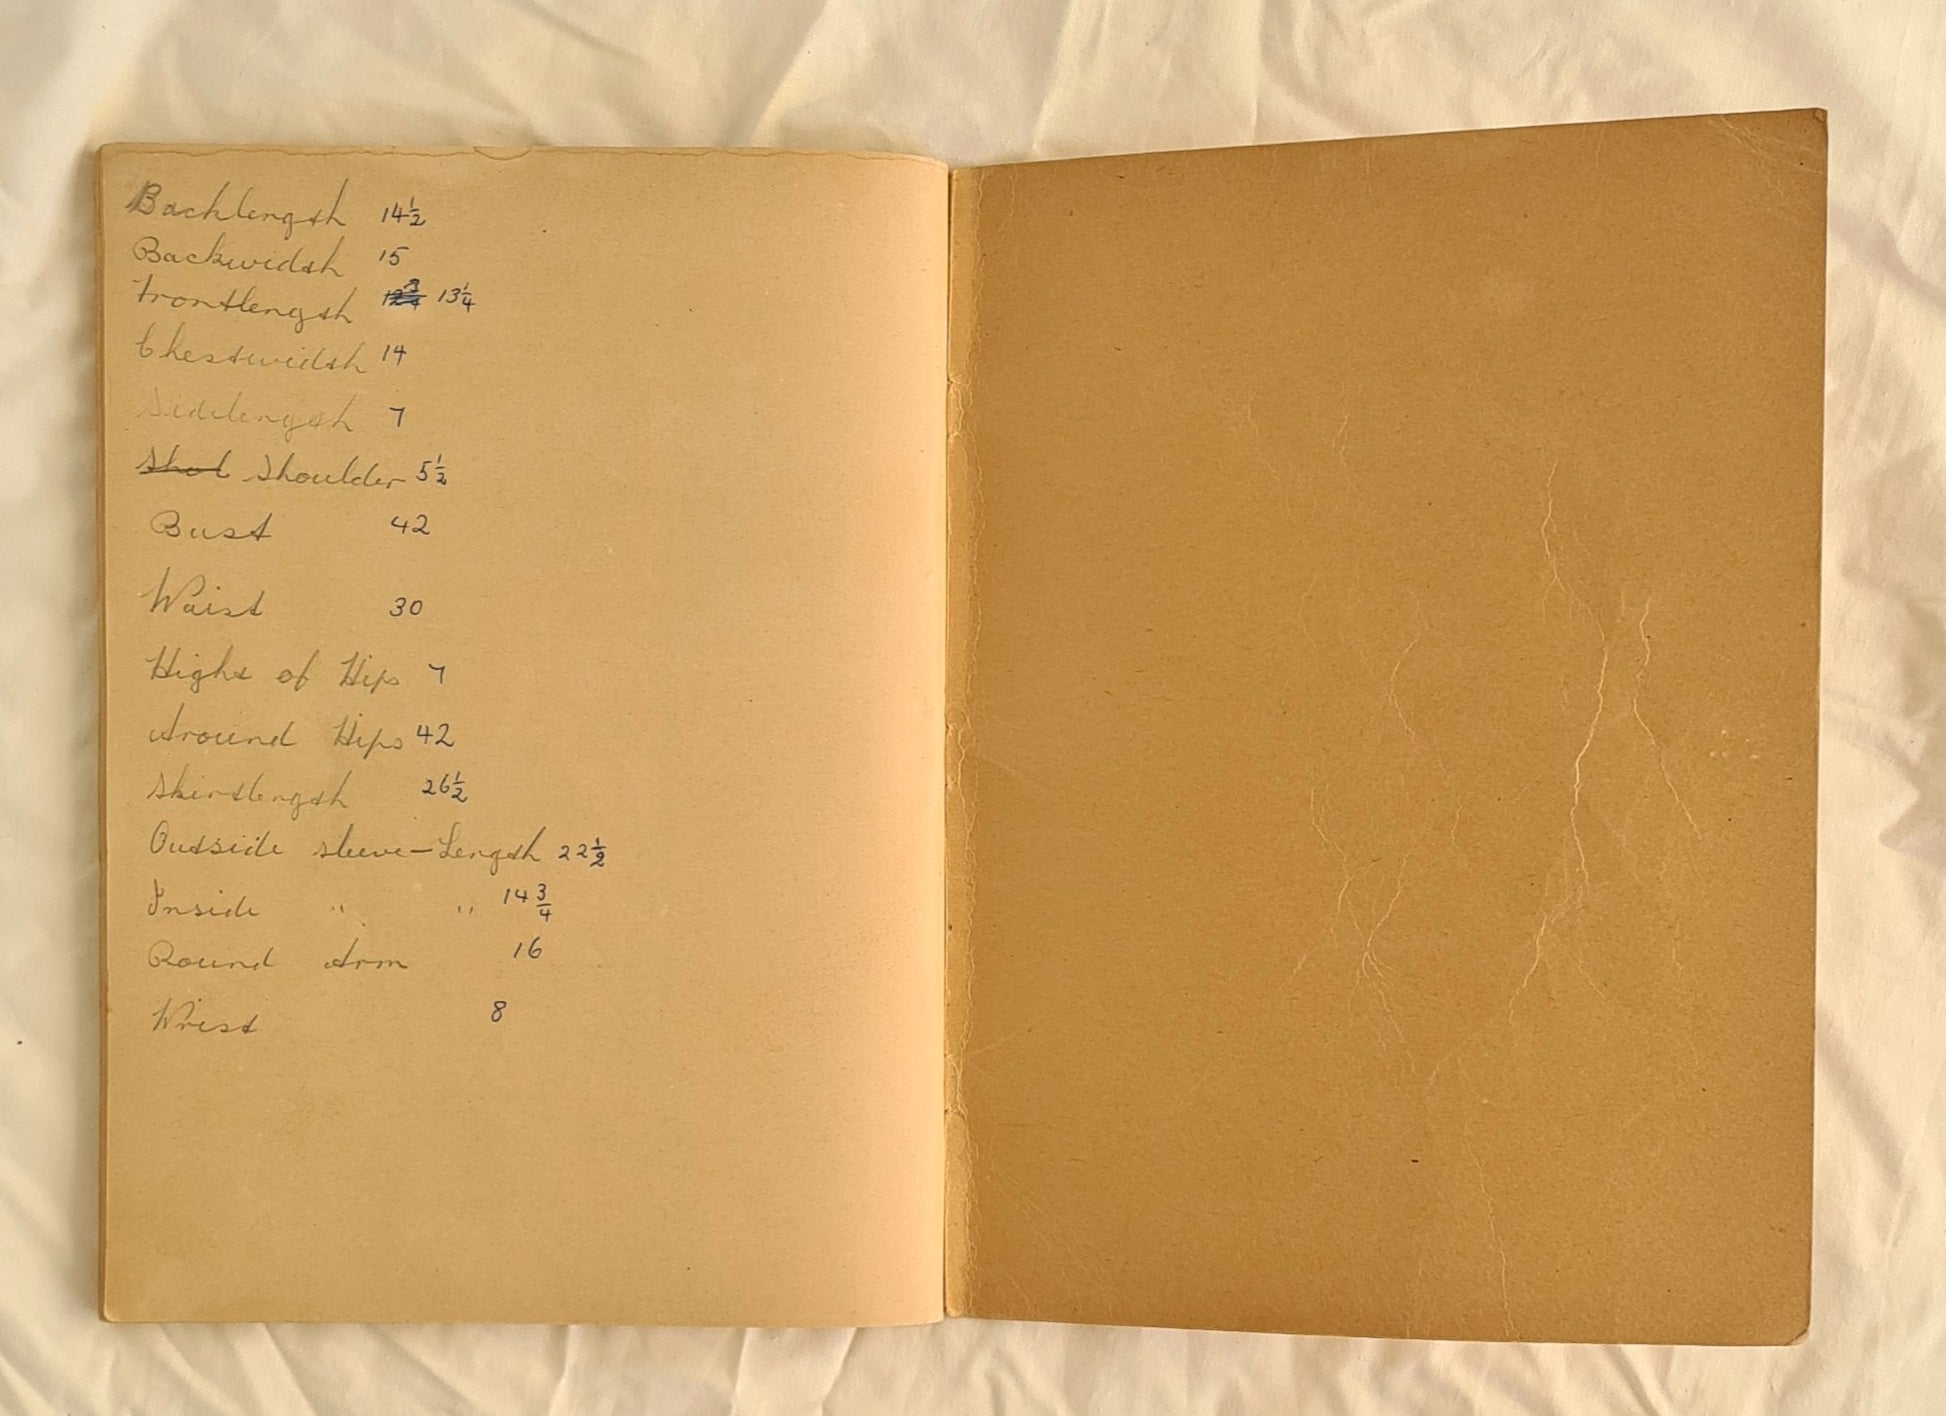 Backlength 14½
Backwidth 15
Frontlength 12¾ 13¼
Chestwidth 14
Sidelength 7
Shol Shoulder 5½
Bust 42
Waist 30
Hight of Hips 7
Around Hips 42
Skirtlength 26½
Outside sleeve-Length 22½
Inside " " 14¾
Round Arm 16
Wrist 8